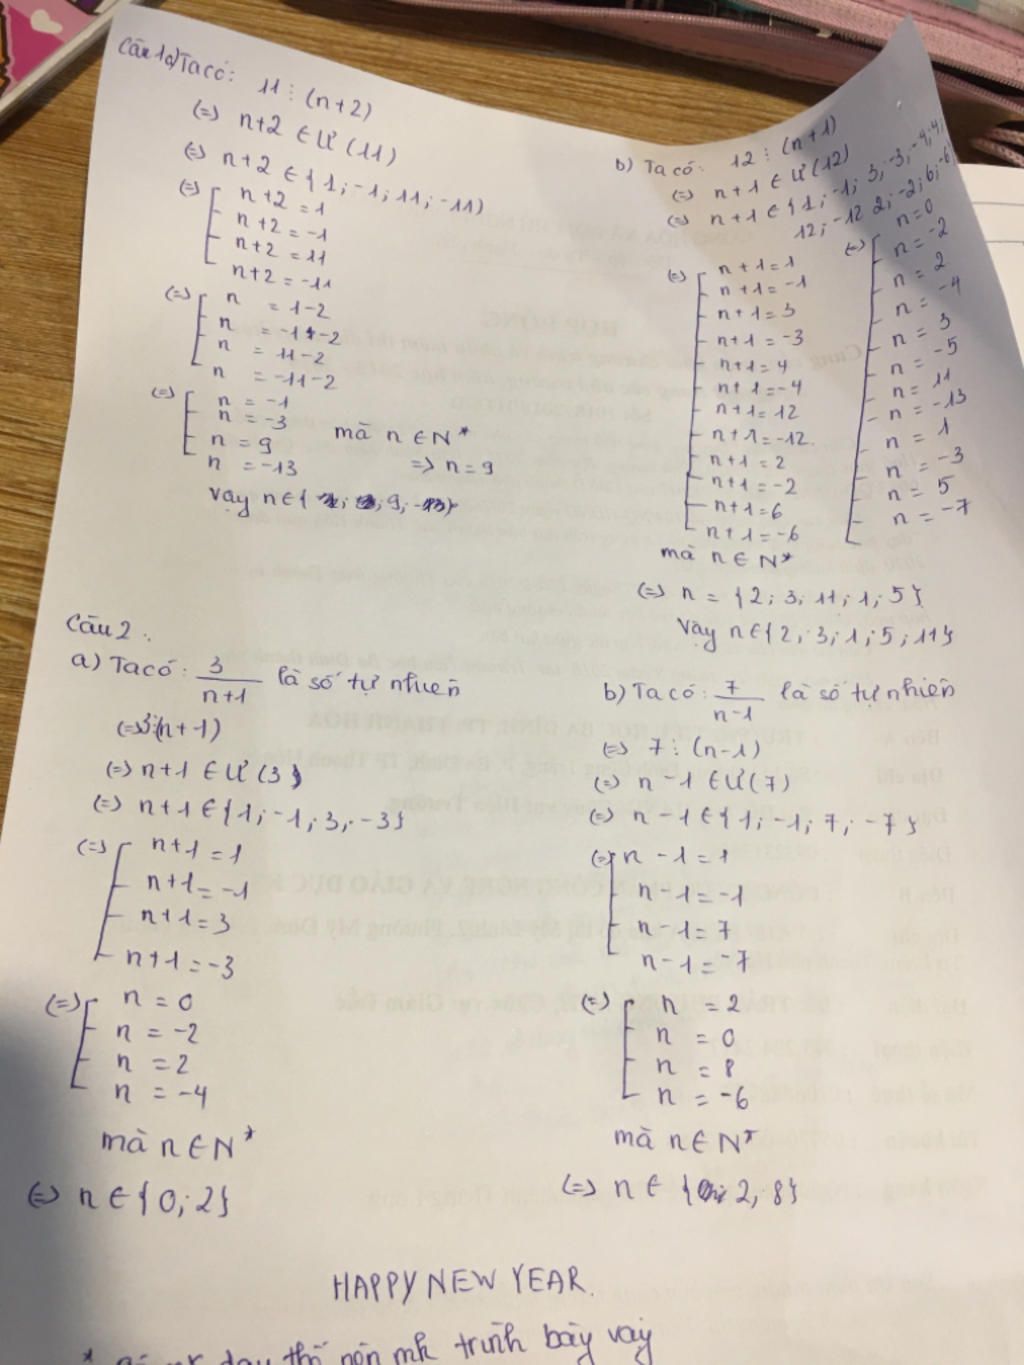 Câu 1a) Ta có: 11 ⋮ (n+2)
(=) n+2 ∈ Ư (11)
(=) n+2 ∈ {1; -1; 11; -11}
(=) [ n+2 = 1
n+2 = -1
n+2 = 11
n+2 = -11
(=) [ n = 1-2
n = -1-2
n = 11-2
n = -11-2
(=) [ n = -1
n = -3
n = 9
n = -13
mà n ∈ N*
=> n = 9
vậy n ∈ { 9;
b) Ta có: 12 ⋮ (n+1)
(=) n+1 ∈ Ư (12)
(=) n+1 ∈ {1; -1; 3; -3; -4; 4;
12; -12 2; -2; 6; -6
(=) [ n+1 = 1
n+1 = -1
n+1 = 3
n+1 = -3
n+1 = 4
n+1 = -4
n+1 = 12
n+1 = -12.
n+1 = 2
n+1 = -2
n+1 = 6
n+1 = -6
(=) [ n = 0
n = -2
n = 2
n = -4
n = 3
n = -5
n = 11
n = -13
n = 1
n = -3
n = 5
n = -7
mà n ∈ N*
(=) n = {2; 3; 11; 1; 5}
Vậy n ∈ {2; 3; 1; 5; 11}
Câu 2:
a) Ta có: 3/(n+1) là số tự nhiên
(=) 3⋮(n+1)
(=) n+1 ∈ Ư (3)
(=) n+1 ∈ {1; -1; 3; -3}
(=) [ n+1 = 1
n+1 = -1
n+1 = 3
n+1 = -3
(=) [ n = 0
n = -2
n = 2
n = -4
mà n ∈ N*
(=) n ∈ {0; 2}
b) Ta có: 7/(n-1) là số tự nhiên
(=) 7 ⋮ (n-1)
(=) n-1 ∈ Ư (7)
(=) n-1 ∈ {1; -1; 7; -7}
(=) [ n-1 = 1
n-1 = -1
n-1 = 7
n-1 = -7
(=) [ n = 2
n = 0
n = 8
n = -6
mà n ∈ N*
(=) n ∈ { 2; 8}
HAPPY NEW YEAR.
* nên mk trình bày vậy